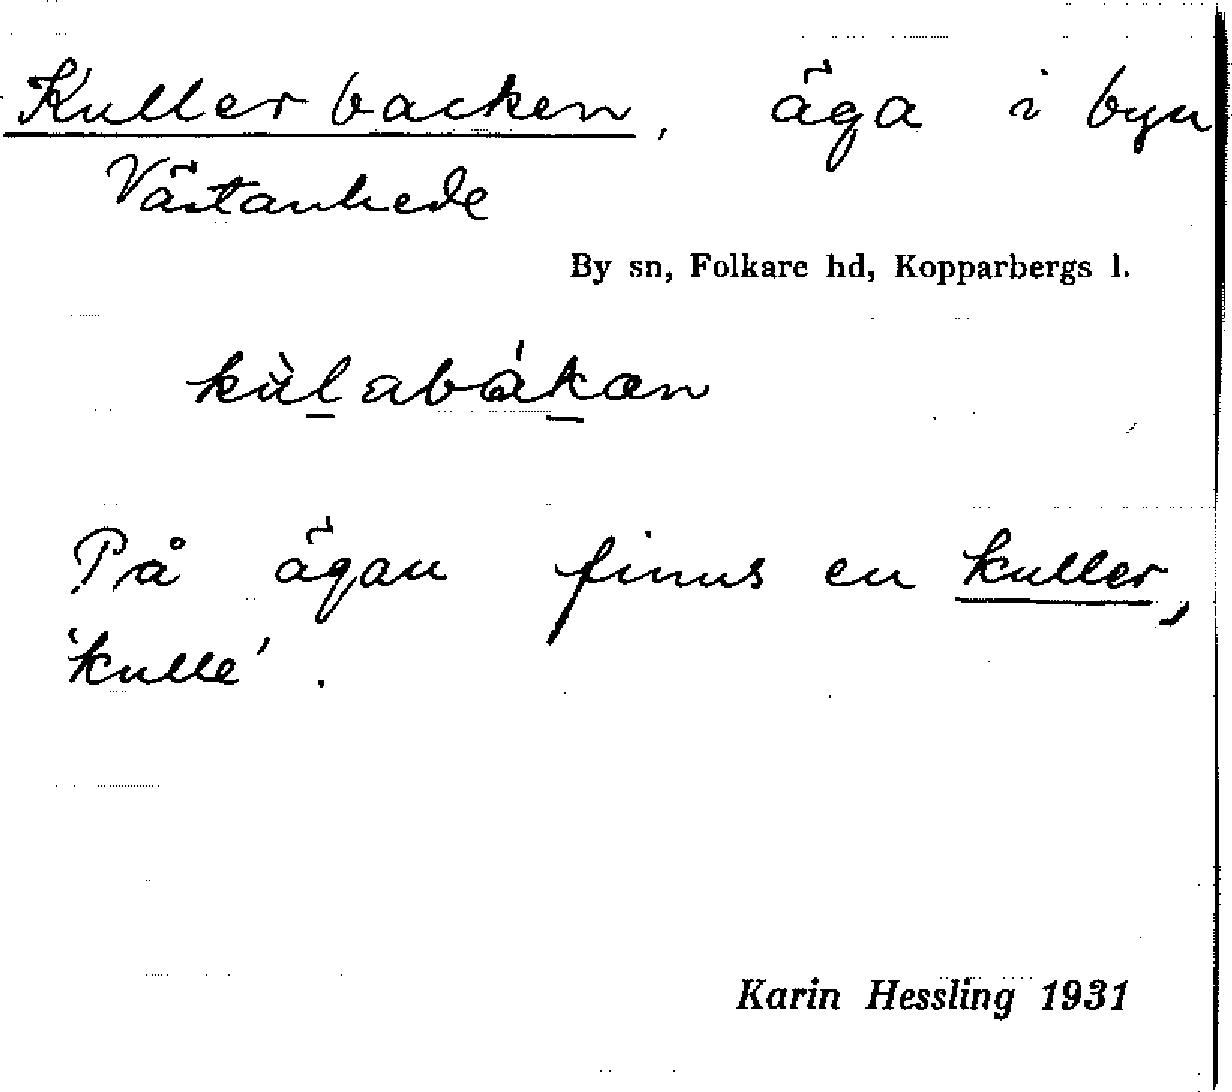 Kullerbacken, äga i byn
Västanhede
By sn, Folkare hd, Kopparbergs l.
kùlabákan
På ägan finns en kuller,
'kulle'.
Karin Hessling 1931